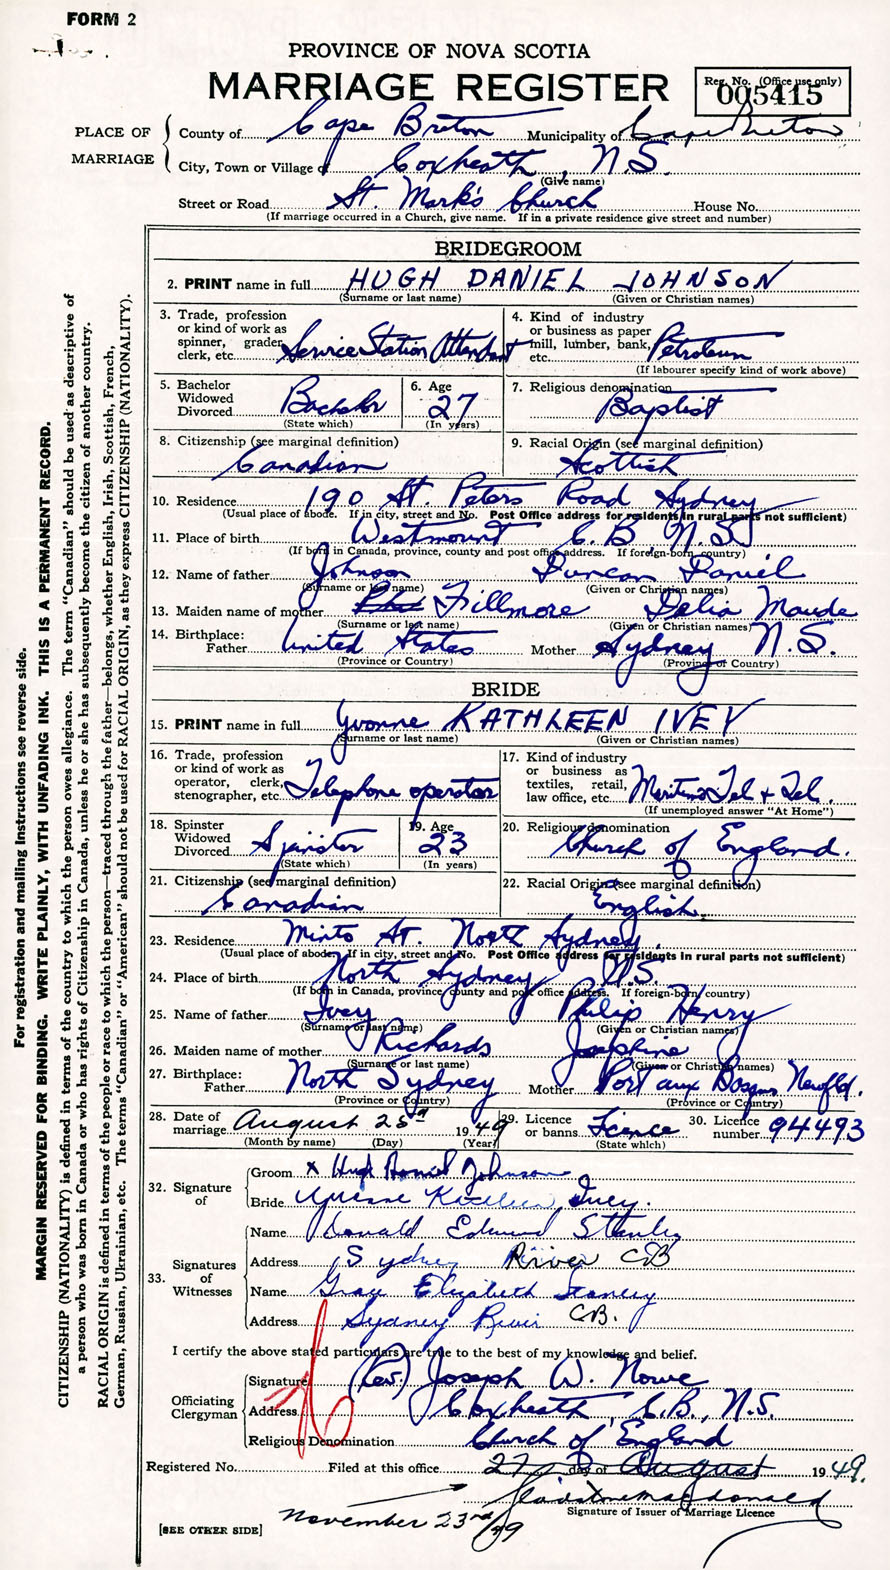 FORM 2
PROVINCE OF NOVA SCOTIA
MARRIAGE REGISTER
Reg. No. (Office use only)
005415
PLACE OF MARRIAGE
County of Cape Breton Municipality of Cape Breton
City, Town or Village of Coxheath, N.S.
(Give name)
Street or Road St. Mark's Church House No.
(If marriage occurred in a Church, give name. If in a private residence give street and number)
BRIDEGROOM
2. PRINT name in full HUGH DANIEL JOHNSON
(Surname or last name) (Given or Christian names)
3. Trade, profession or kind of work as spinner, grader, clerk, etc. Service Station Attendant
4. Kind of industry or business as paper mill, lumber, bank, etc. Petroleum
(If labourer specify kind of work above)
5. Bachelor Widowed Divorced Bachelor
(State which)
6. Age 27
(In years)
7. Religious denomination Baptist
8. Citizenship (see marginal definition) Canadian
9. Racial Origin (see marginal definition) Scottish
10. Residence 190 St. Peters Road Sydney
(Usual place of abode. If in city, street and No. Post Office address for residents in rural parts not sufficient)
11. Place of birth Westmount C.B N.S.
(If born in Canada, province, county and post office address. If foreign-born, country)
12. Name of father Johnson Duncan Daniel
(Surname or last name) (Given or Christian names)
13. Maiden name of mother Fillmore Delia Maude
(Surname or last name) (Given or Christian names)
14. Birthplace: Father United States Mother Sydney N.S.
(Province or Country) (Province or Country)
BRIDE
15. PRINT name in full Yvonne KATHLEEN IVEY
(Surname or last name) (Given or Christian names)
16. Trade, profession or kind of work as operator, clerk, stenographer, etc. Telephone operator
17. Kind of industry or business as textiles, retail, law office, etc. Maritime Tel & Tel.
(If unemployed answer "At Home")
18. Spinster Widowed Divorced Spinster
(State which)
19. Age 23
(In years)
20. Religious denomination Church of England.
21. Citizenship (see marginal definition) Canadian
22. Racial Origin (see marginal definition) English.
23. Residence Minto St. North Sydney.
(Usual place of abode. If in city, street and No. Post Office address for residents in rural parts not sufficient)
24. Place of birth North Sydney N.S.
(If born in Canada, province, county and post office address. If foreign-born, country)
25. Name of father Ivey Philip Henry
(Surname or last name) (Given or Christian names)
26. Maiden name of mother Richards Josephine
(Surname or last name) (Given or Christian names)
27. Birthplace: Father North Sydney Mother Port aux Basques Newfld.
(Province or Country) (Province or Country)
28. Date of marriage August 25th 1949
(Month by name) (Day) (Year)
29. Licence or banns Licence
(State which)
30. Licence number 94493
32. Signature of
Groom x Hugh Daniel Johnson
Bride Yvonne Kathleen Ivey.
33. Signatures of Witnesses
Name Donald Edmund Stanley
Address Sydney River CB
Name Grace Elizabeth Stanley
Address Sydney River C.B.
I certify the above stated particulars are true to the best of my knowledge and belief.
Officiating Clergyman
Signature (Rev.) Joseph W. Nowe
Address Coxheath, C.B., N.S.
Religious Denomination Church of England
Registered No. Filed at this office 27 day of August 1949.
Signature of Issuer of Marriage Licence
November 23rd/49
[SEE OTHER SIDE]
For registration and mailing instructions see reverse side.
MARGIN RESERVED FOR BINDING. WRITE PLAINLY, WITH UNFADING INK. THIS IS A PERMANENT RECORD.
CITIZENSHIP (NATIONALITY) is defined in terms of the country to which the person owes allegiance. The term "Canadian" should be used as descriptive of
a person who was born in Canada or who has rights of Citizenship in Canada, unless he or she has subsequently become the citizen of another country.
RACIAL ORIGIN is defined in terms of the people or race to which the person—traced through the father—belongs, whether English, Irish, Scottish, French,
German, Russian, Ukrainian, etc. The terms "Canadian" or "American" should not be used for RACIAL ORIGIN, as they express CITIZENSHIP (NATIONALITY).